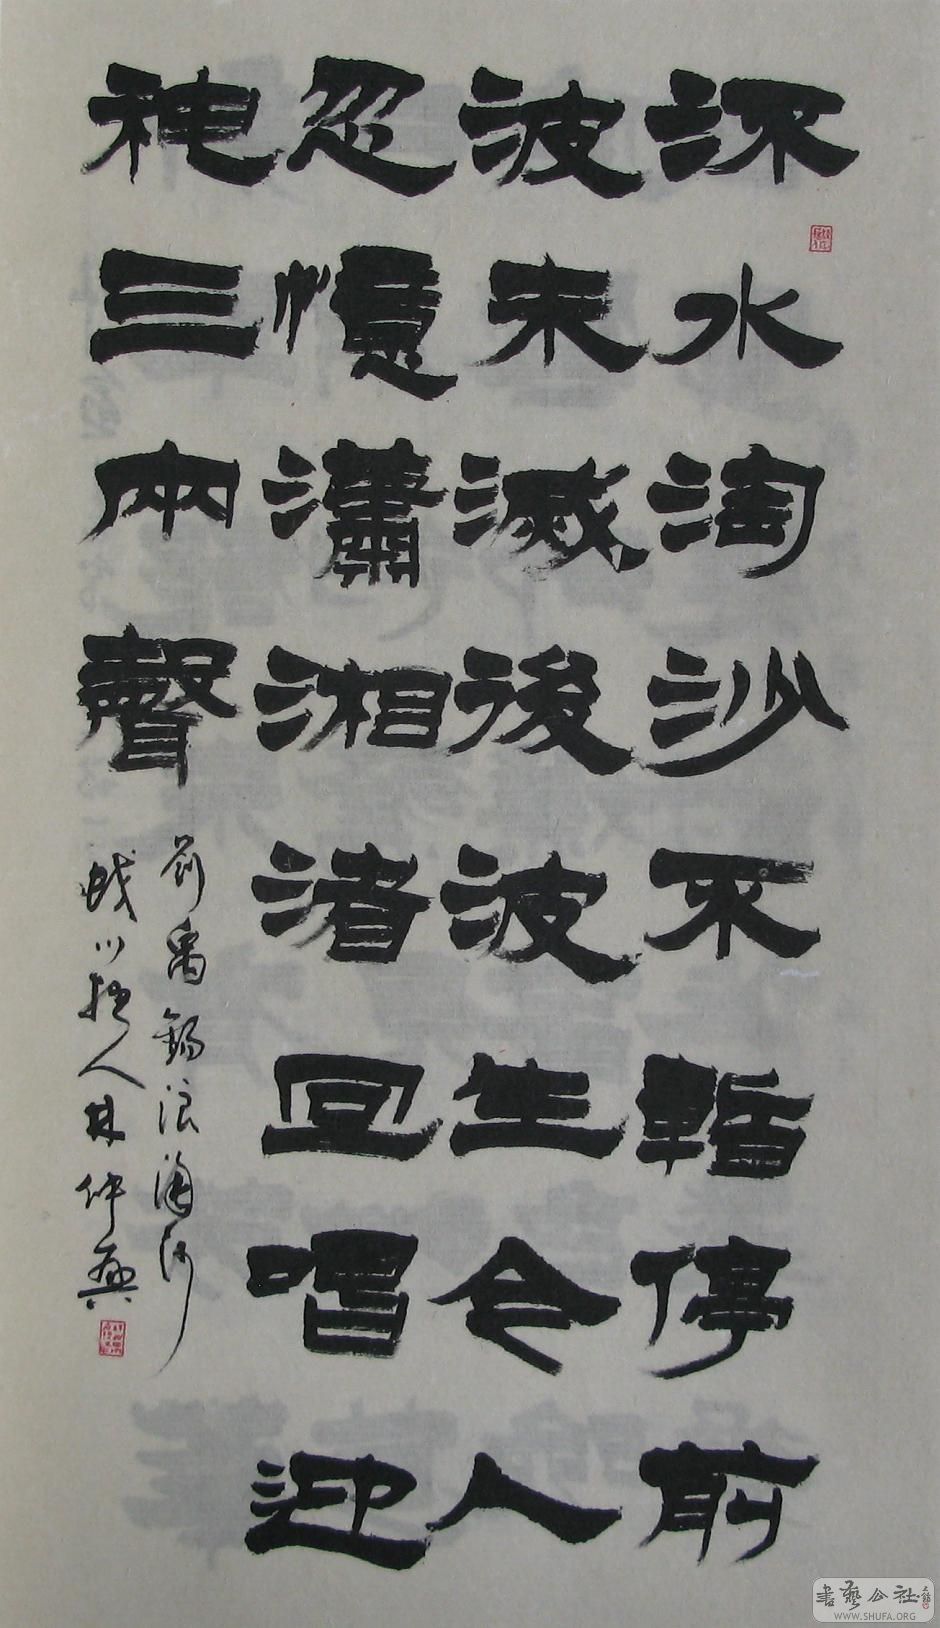 流水淘沙不暫停前
波未滅後波生令人
忽憶瀟湘渚回唱迎
神三兩聲
劉禹錫浪淘沙
川人林仲興
書藝公社
WWW.SHUFA.ORG